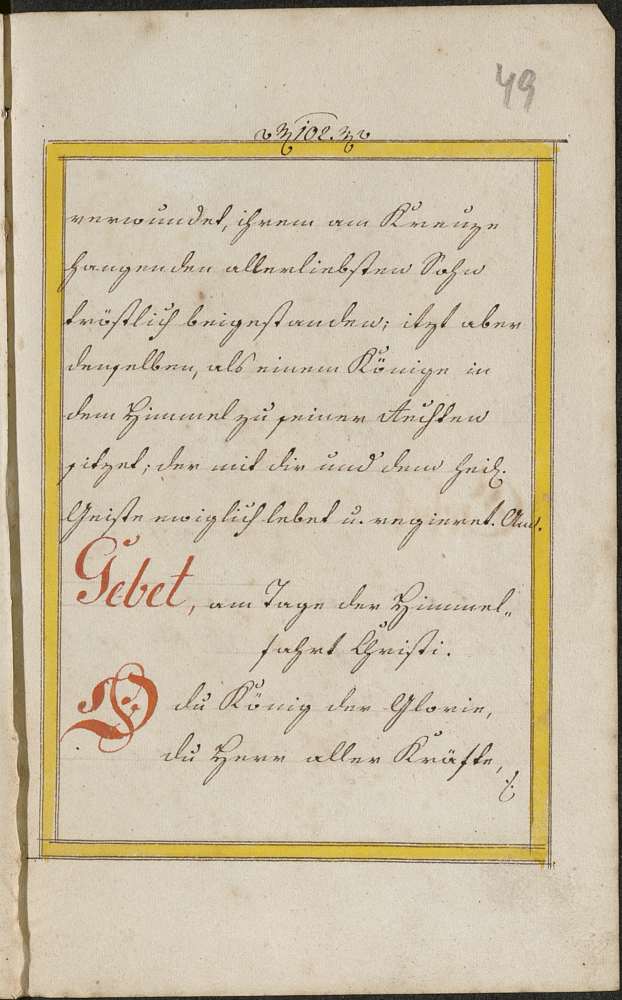 49
102.
verwundet, ihrem am Kreuze
hangenden allerliebsten Sohn
tröstlich beigestanden; itzt aber
denselben, als einem Könige in
dem Himmel zu seiner Rechten
sitzet; der mit dir und dem heil.
Geiste ewiglich lebet u. regieret. Am.
Gebet, am Tage der Himmel„
fahrt Christi.
O du König der Glorie,
du Herr aller Kräfte,